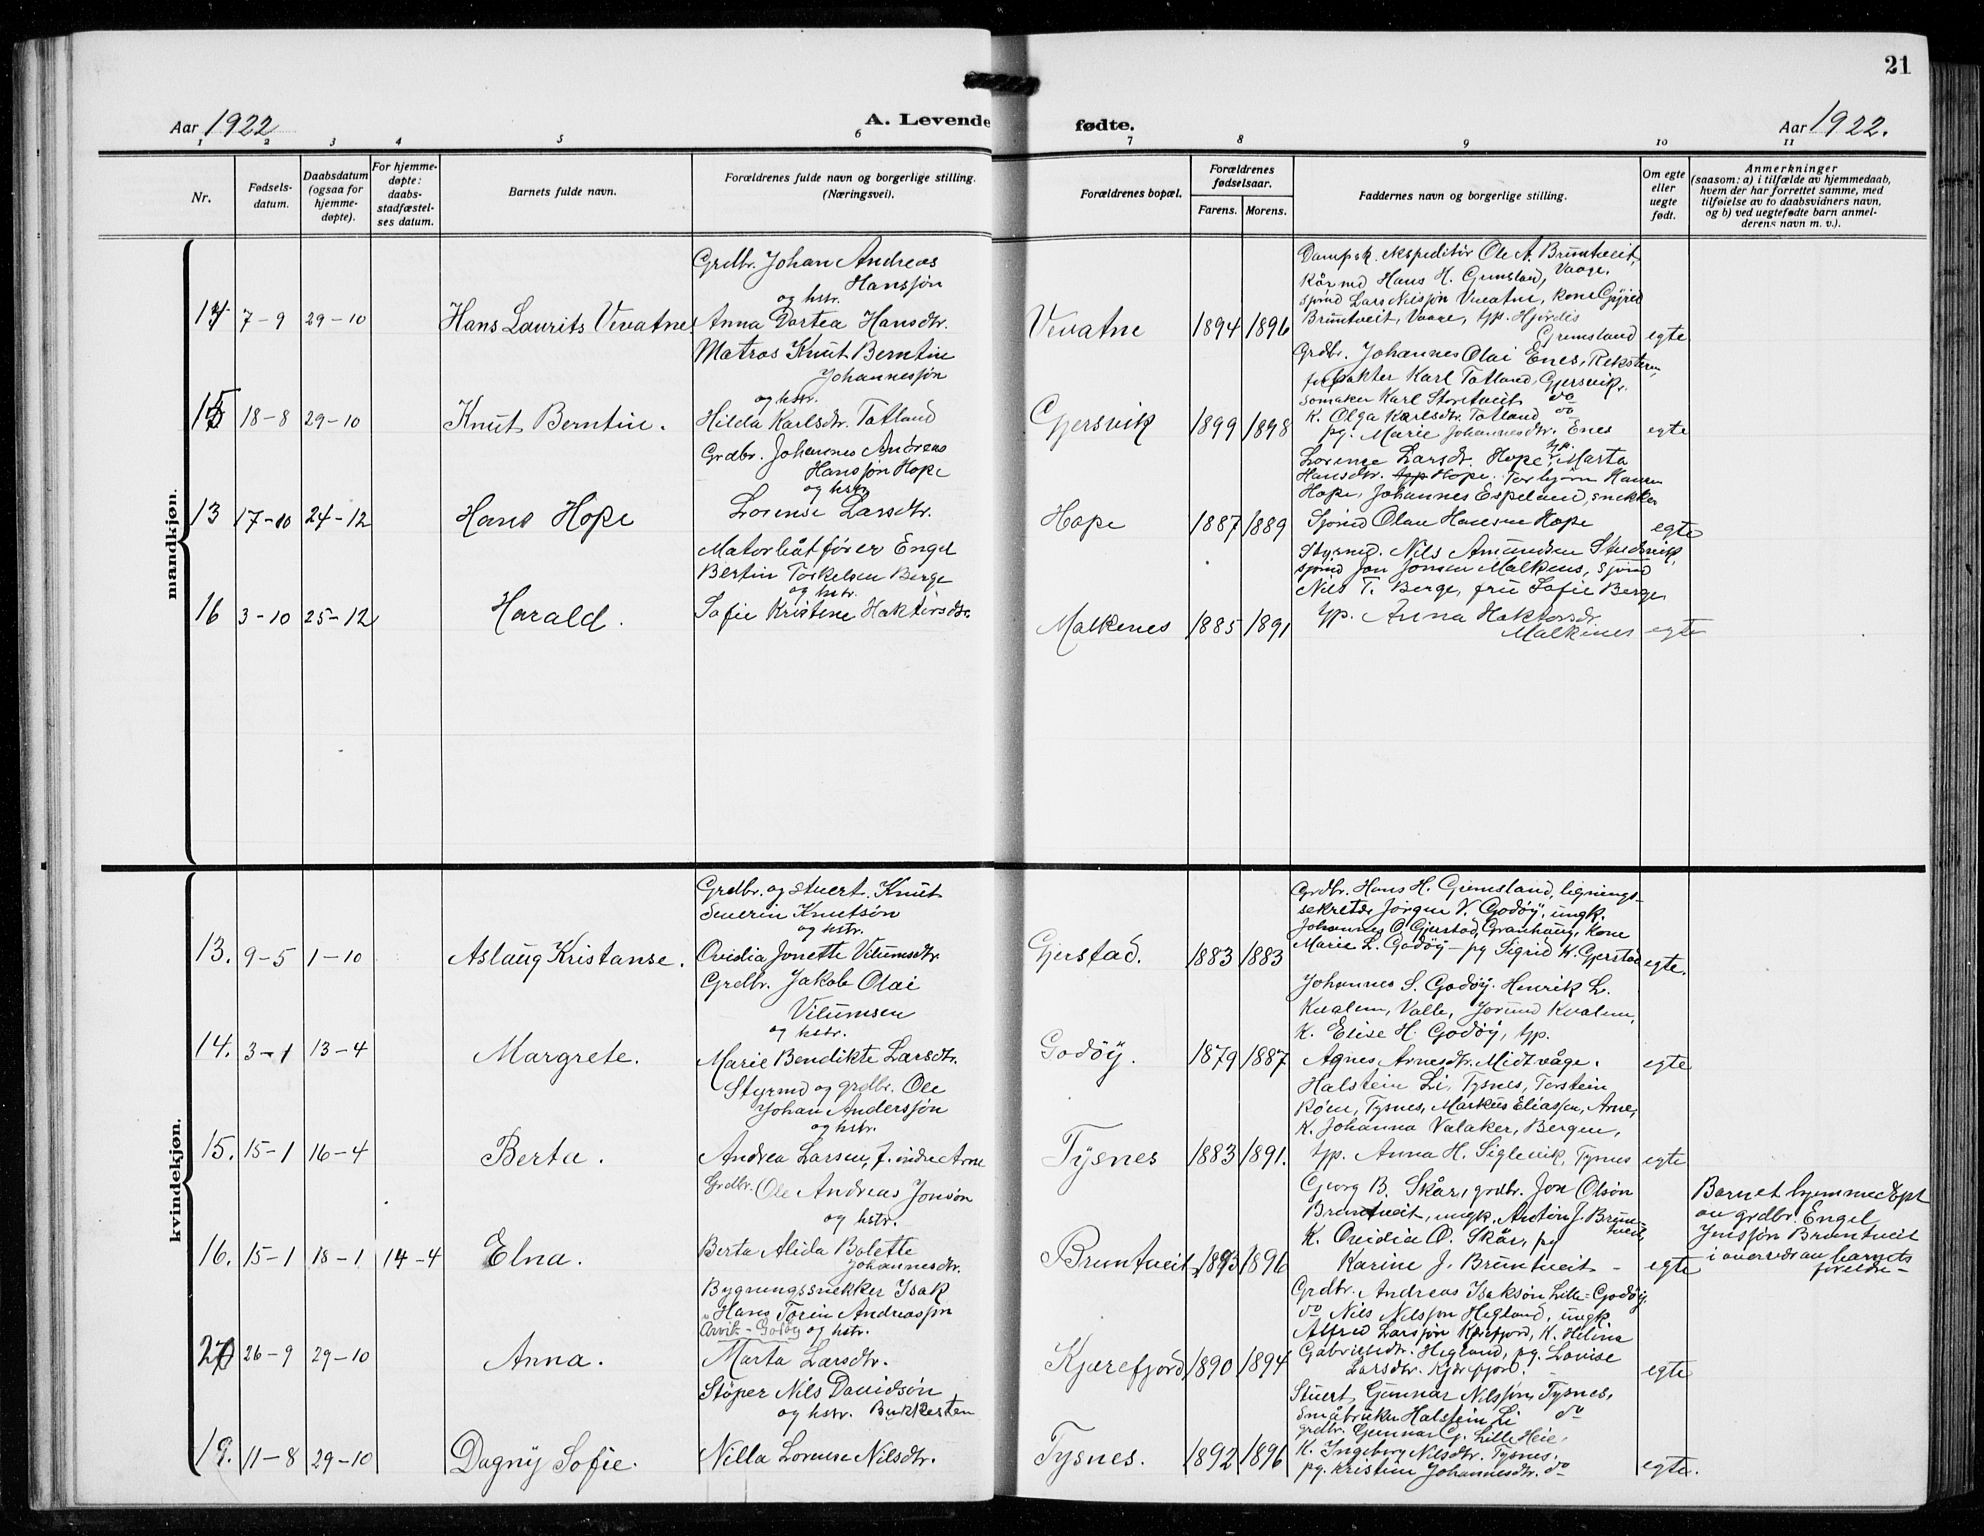 21
Aar 1922
A. Levende fødte.
Aar 1922.
1 2 3 4 5 6 7 8 9 10 11
Nr.
Fødsels-
datum.
Daabsdatum
(ogsaa for
hjemme-
døpte).
For hjemme-
døpte:
daabs-
stadfæstel-
ses datum.
Barnets fulde navn.
Forældrenes fulde navn og borgerlige stilling.
(Næringsvei).
Forældrenes bopæl.
Forældrenes
fødselsaar.
Farens. Morens.
Faddernes navn og borgerlige stilling.
Om egte
eller
uegte
født.
Anmerkninger
(saasom: a) i tilfælde av hjemmedaab,
hvem der har forrettet samme, med
tilføielse av to daabsvidners navn,
og b) ved uegtefødte barn anmel-
derens navn m. v.).
mandkjøn.
14 7-9 29-10
Hans Laurits Vevatne
Grdbr. Johan Andreas
Hansson
og hstr.
Anna Dortea Hansdtr.
Vevatne
1894 1896
Dampsk. ekspeditør Ole A. Bruntveit,
Vaage,
Hans H. Gjemsland,
sjømd Lars Nilsson Vevatne, kone
Bruntveit, Vaage, tjp. Hjørdis
Gjemsland
egte
15 18-8 29-10
Knut Berntin.
Matros Knut Berntin
Johannessøn
og hstr.
Hilda Karlsdtr. Tatland
Gjersvik
1899 1898
Grdbr. Johannes Olai Enes, Reksteren,
Karl Tatland, Gjersvik,
Karl Stortveit do
K. Olga Karlsdtr. Tatland do
pg. Marie Johannesdtr. Enes
egte
13 17-10 24-12
Hans Hope
Grdbr. Johannes Andreas
Hanssøn Hope
og hstr.
Lorense Larsdtr.
Hope
1887 1889
Lorense Larsdtr. Hope, tjp. Marta
Hansdtr. Hope. Torbjørn Hansen
Hope, Johannes Espeland, snekker
Sjømd Olav Hansen Hope
egte
16 3-10 25-12
Harald.
Motorbåtfører Engel
Bertin Torkelsen Berge
og hstr.
Sofie Kristene Haktorsdtr.
Malkenes
1885 1891
Styrmd. Nils Amundsen
sjømd Jon Jonsen Malkenes, sjømd
Nils T. Berge, fru Sofie Berge,
tjp. Anna Haktorsdr.
Malkenes
egte
kvindekjøn.
13. 9-5 1-10
Aslaug Kristanse.
Grdbr. og stuert Knut
Severin Knutsøn
og hstr.
Ovidia Jonette Vilumsdtr.
Gjerstad.
1883 1883
Grdbr. Hans H. Gjemsland, lignings-
sekretær Jørgen V. Godøy, ungk.
Johannes O. Gjerstad, Granhaug, kone
Marie L. Godøy - pg Sigrid K. Gjerstad
egte.
14. 3-1 13-4
Margrete.
Grdbr. Jakob Olai
Vilumsen
og hstr.
Marie Bendikte Larsdtr.
Godøy.
1879 1887
Johannes S. Godøy. Henrik L.
Kvalem, Valle, Jorund Kvalem,
K. Elise H. Godøy, tjp.
Agnes Arnesdtr. Midtvåge.
egte
15. 15-1 16-4
Berta.
Styrmd og grdbr. Ole
Johan Anderssøn
og hstr.
Andrea Larsen, f. indre Arne
Tysnes
1883 1891.
Halstein Li, Tysnes, Torstein
Røen, Tysnes, Markus Eliassen, Arne,
K. Johanna Valaker, Bergen,
tjp. Anna H. Siglevik, Tysnes
egte
16. 15-1 18-1 14-4
Elna.
Grdbr. Ole Andreas Jonsøn
og hstr.
Berta Alida Bolette
Johannesdtr.
Bruntveit
1893 1896
Georg B. Skår, grdbr. Jon Olsøn
Bruntveit, ungk. Anton J. Brun-
tveit,
K. Ovidia O. Skår, pg
Karine J. Bruntveit -
egte
Barnet hjemmedøpt
av grdbr. Engel
Jenssøn Bruntveit
i overvær av barnets
foreldre -
27 26-9 29-10
Anna.
Bygningssnekker Isak
Hans Torin Andreassøn
Arvik - Godøy og hstr.
Marta Larsdtr.
Kjærefjord
1890 1894
Grdbr. Andreas Isaksøn Lille-Godøy,
do Nils Nilsson Hegland, ungk.
Alfred Larssøn Kjærfjord, K. Helina
Gabrielsdtr. Hegland, pg. Lovise
Larsdtr. Kjærfjord.
egte
19. 11-8 29-10
Dagny Sofie.
Støper Nils Davidsøn
og hstr. Bukkesten
Nilla Lorense Nilsdtr.
Tysnes.
1892 1896
Stuert Gunnar Nilssøn, Tysnes,
småbruker Halstein Li do
grdbr. Gunnar G. Lille Heie,
K. Ingeborg Nilsdtr. Tysnes,
pg. Kristine Johannesdtr. do
egte.